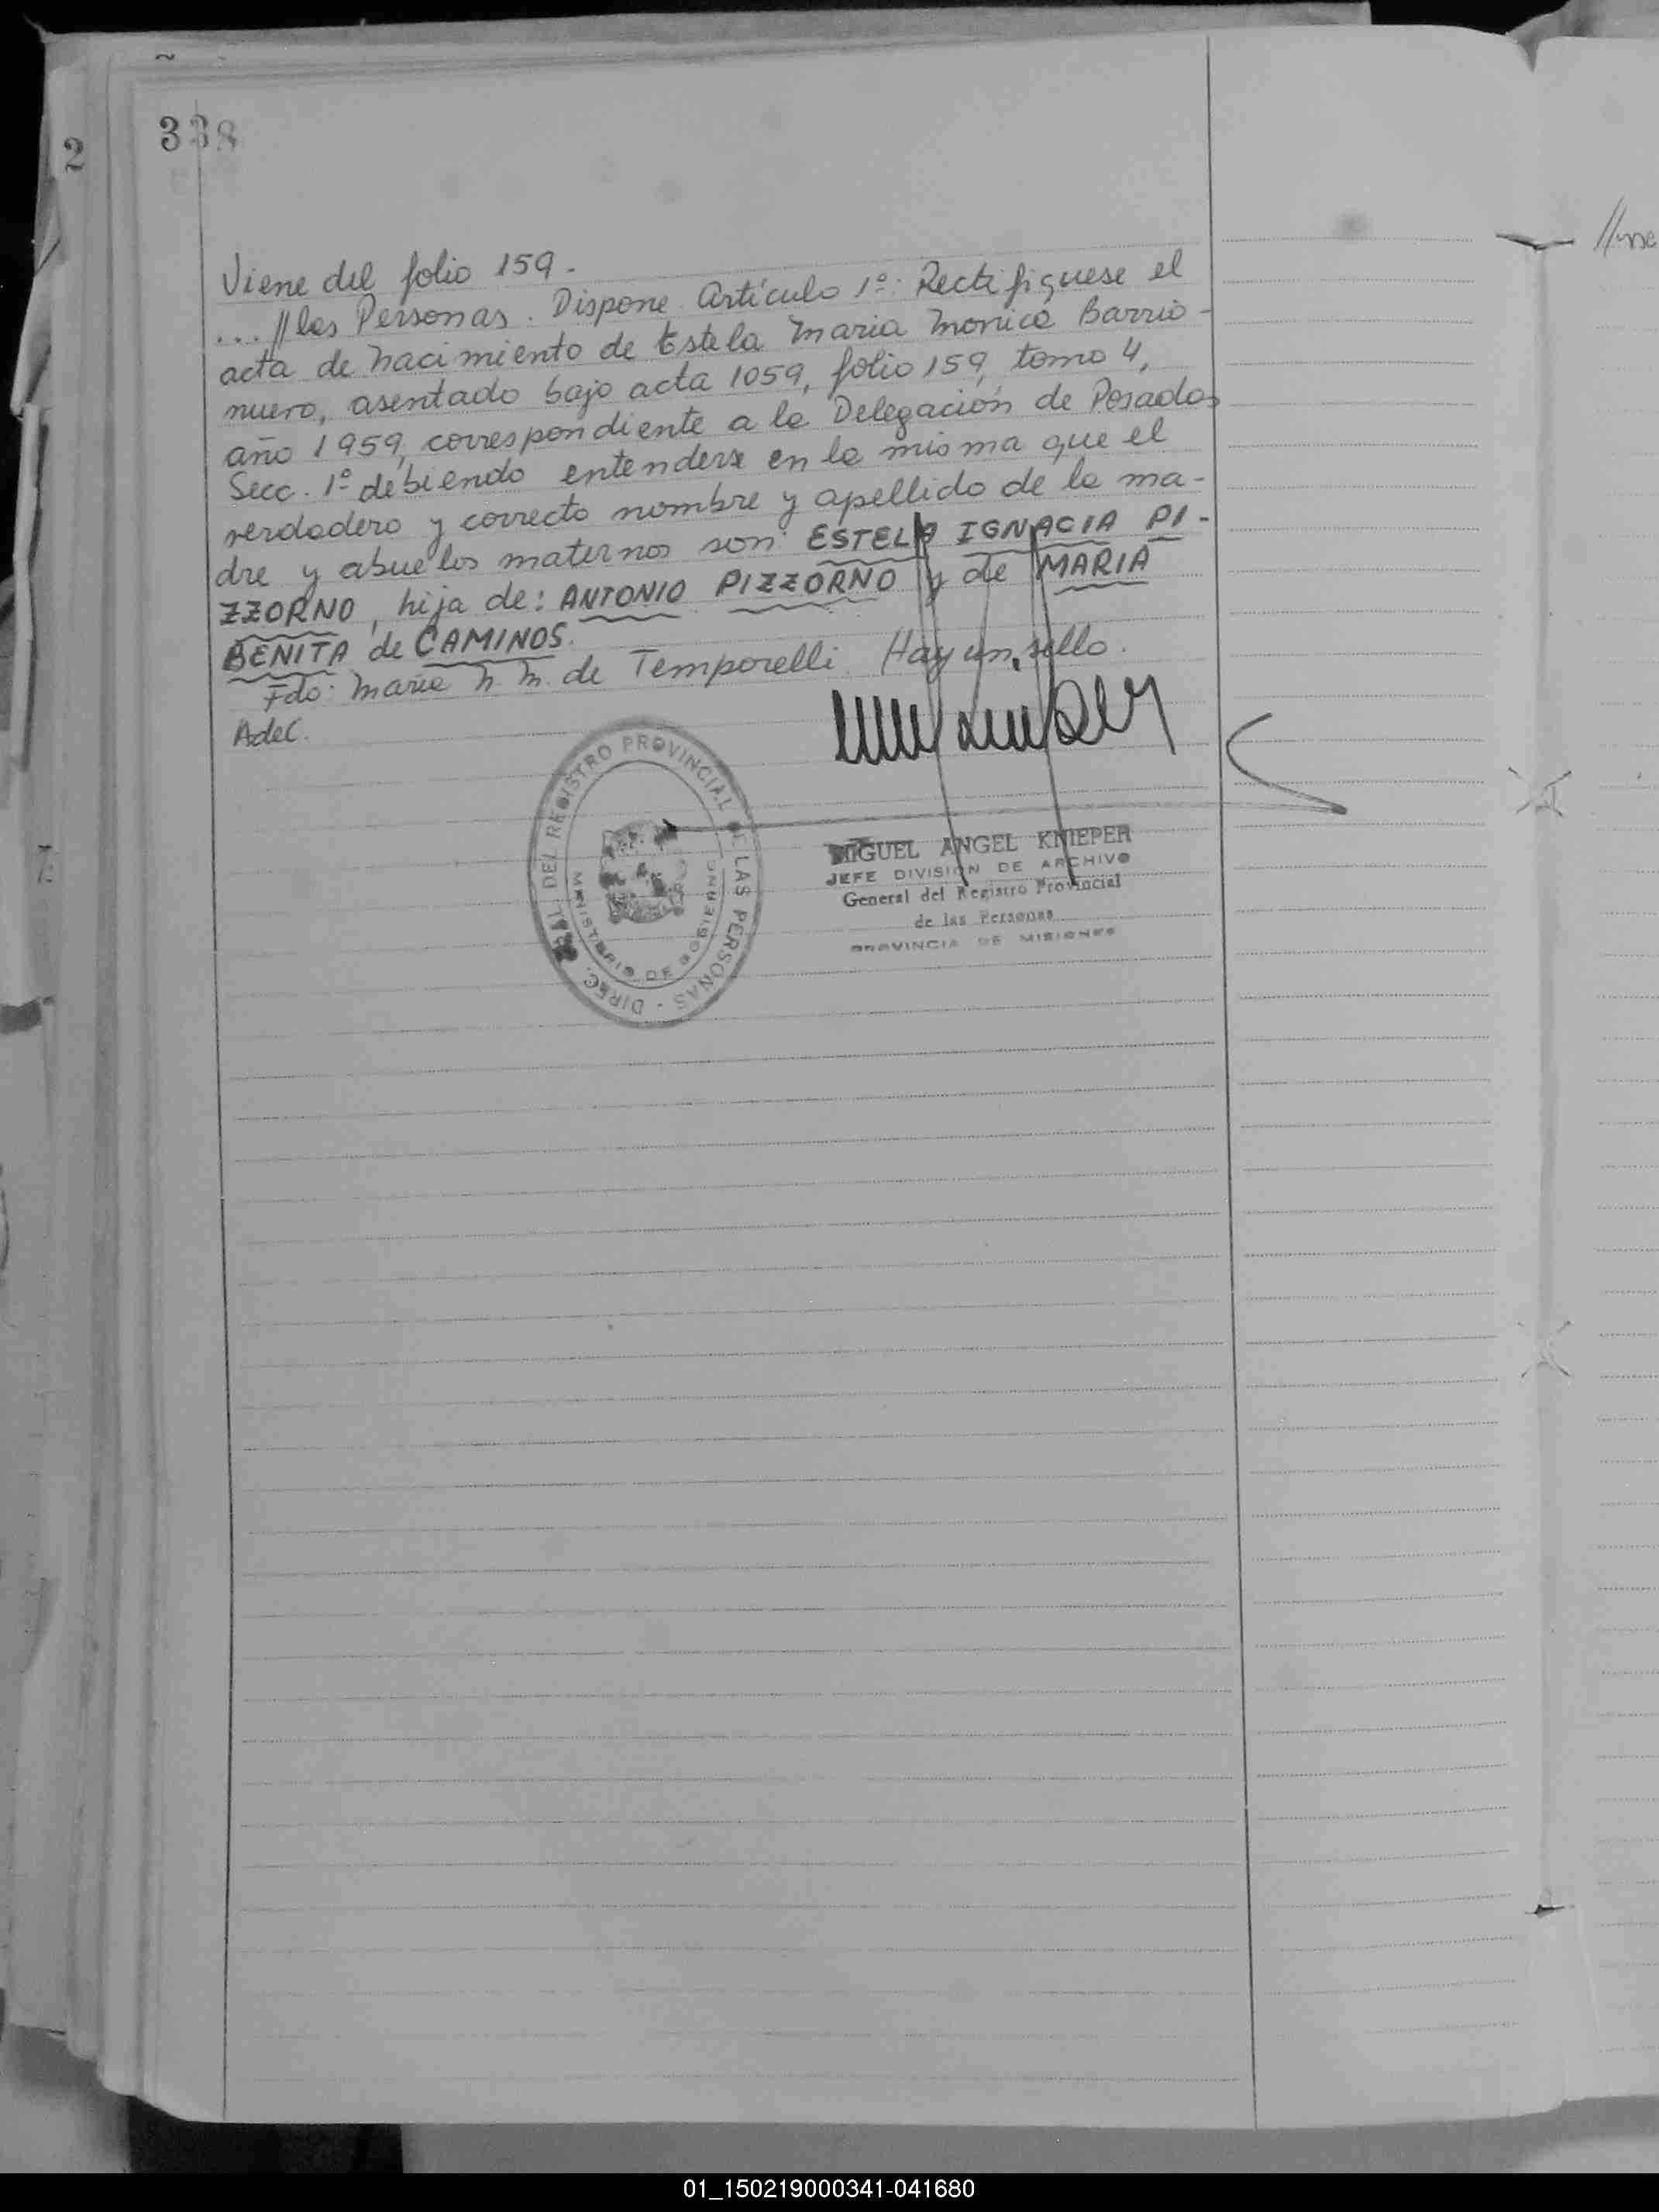 2
338
Viene del folio 159.-
...//las Personas. Dispone Artículo 1º: Rectifiquese el
acta de nacimiento de Estela Maria Monica Barrio-
nuero, asentado bajo acta 1059, folio 159, tomo 4,
año 1959, correspondiente a la Delegación de Posadas
Secc. 1º debiendo entenderse en la misma que el
verdadero y correcto nombre y apellido de la ma-
dre y abuelos maternos son: ESTELA IGNACIA PI-
ZZORNO, hija de: ANTONIO PIZZORNO y de MARIA
BENITA de CAMINOS.
Fdo: Maria N. M. de Temporelli. Hay un sello.
AdeC.
DIREC. DEL REGISTRO PROVINCIAL DE LAS PERSONAS -
MINISTERIO DE GOBIERNO
MIGUEL ANGEL KNIEPER
JEFE DIVISION DE ARCHIVO
General del Registro Provincial
de las Personas
PROVINCIA DE MISIONES
01_150219000341-041680